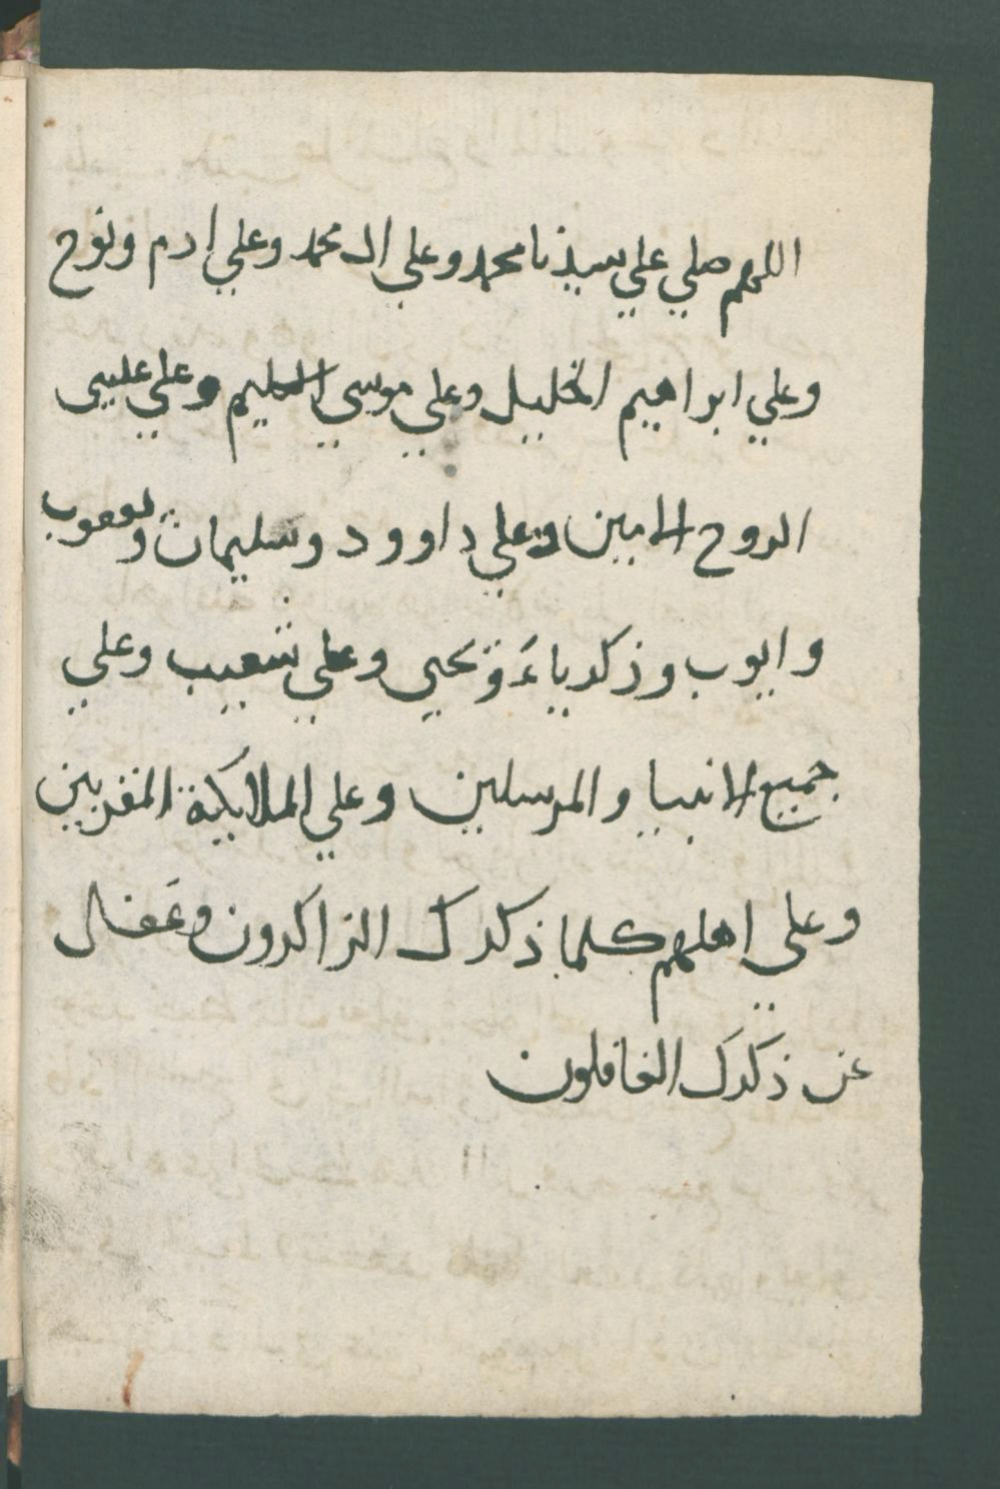 اللهم صلي علي سيدنا محمد وعلي ال محمد وعلي ادم ونوح
وعلي ابراهيم الخليل وعلي موسي الكليم وعلي عيسي
الروح الامين وعلي داوود وسليمان ويعقوب
وايوب وزكرياء ويحيي وعلي شعيب وعلي
جميع الانبيا والمرسلين وعلي الملايكة المقربين
وعلي اهلهم كلما ذكرك الذاكرون وغفل
عن ذكرك الغافلون